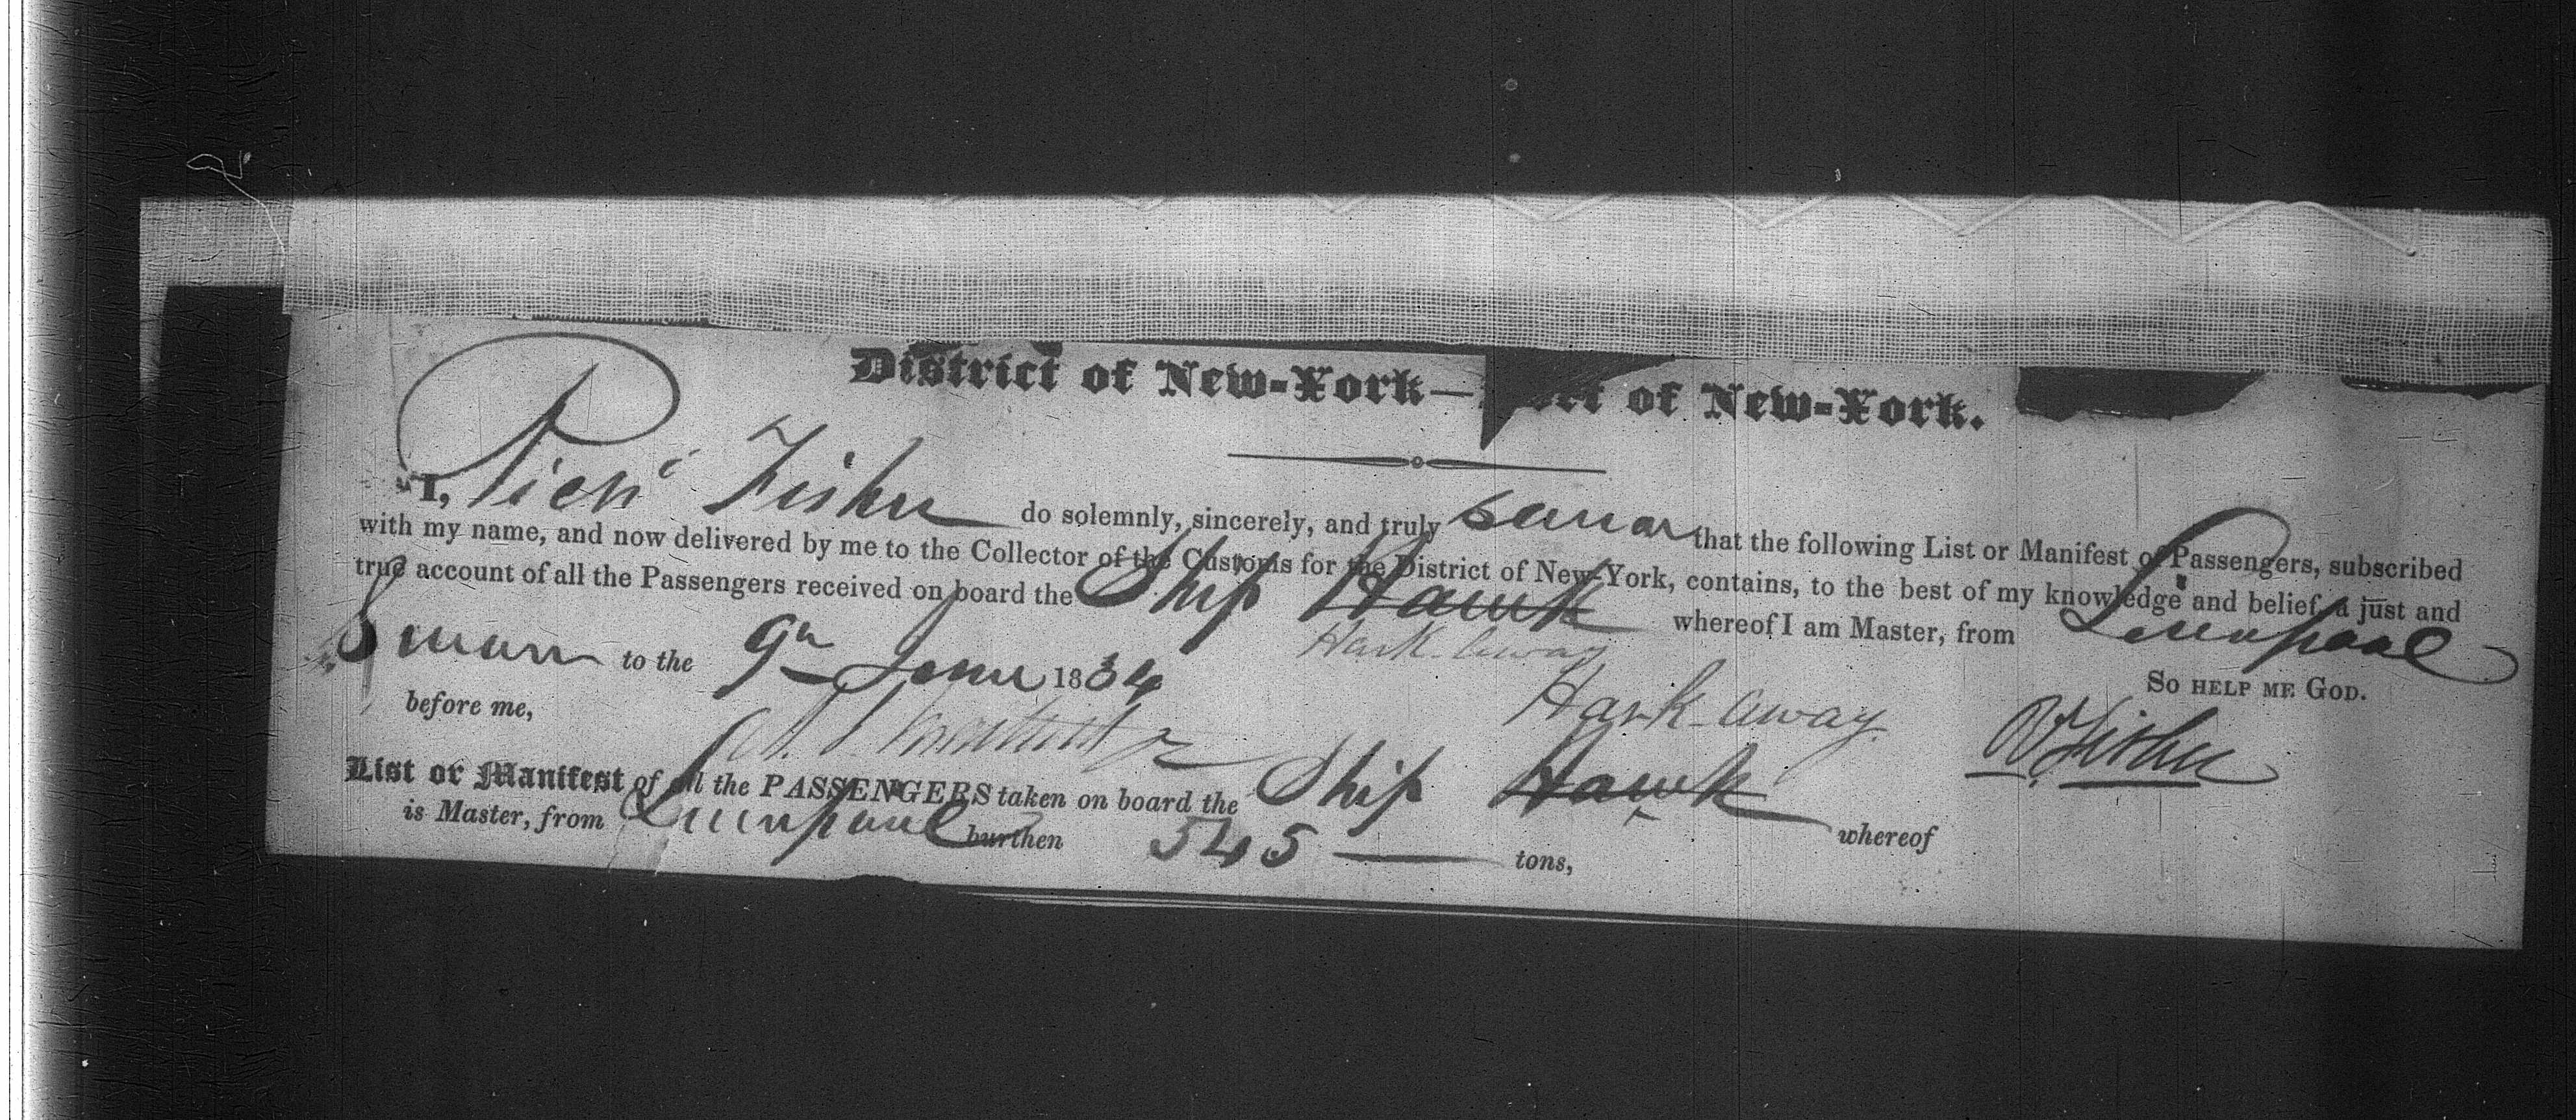 District of New-York— Port of New-York.
I, Rich Fisher do solemnly, sincerely, and truly swear that the following List or Manifest of Passengers, subscribed
with my name, and now delivered by me to the Collector of the Customs for the District of New-York, contains, to the best of my knowledge and belief, a just and
true account of all the Passengers received on board the Ship Hawk whereof I am Master, from Liverpool
Hark away
Sworn to the 9th June 1834
So help me God.
before me,
Hark away
R Fisher
List or Manifest of all the PASSENGERS taken on board the Ship Hawk whereof
is Master, from Liverpool burthen 545 tons,